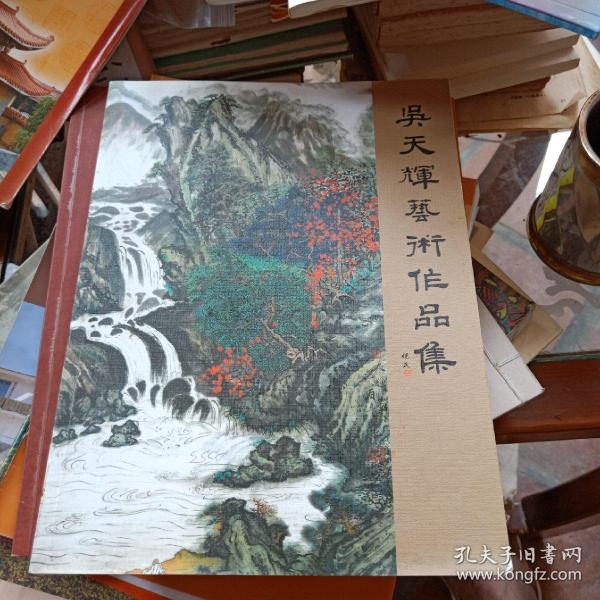 吳天輝藝術作品集
孔夫子旧书网
www.kongfz.com